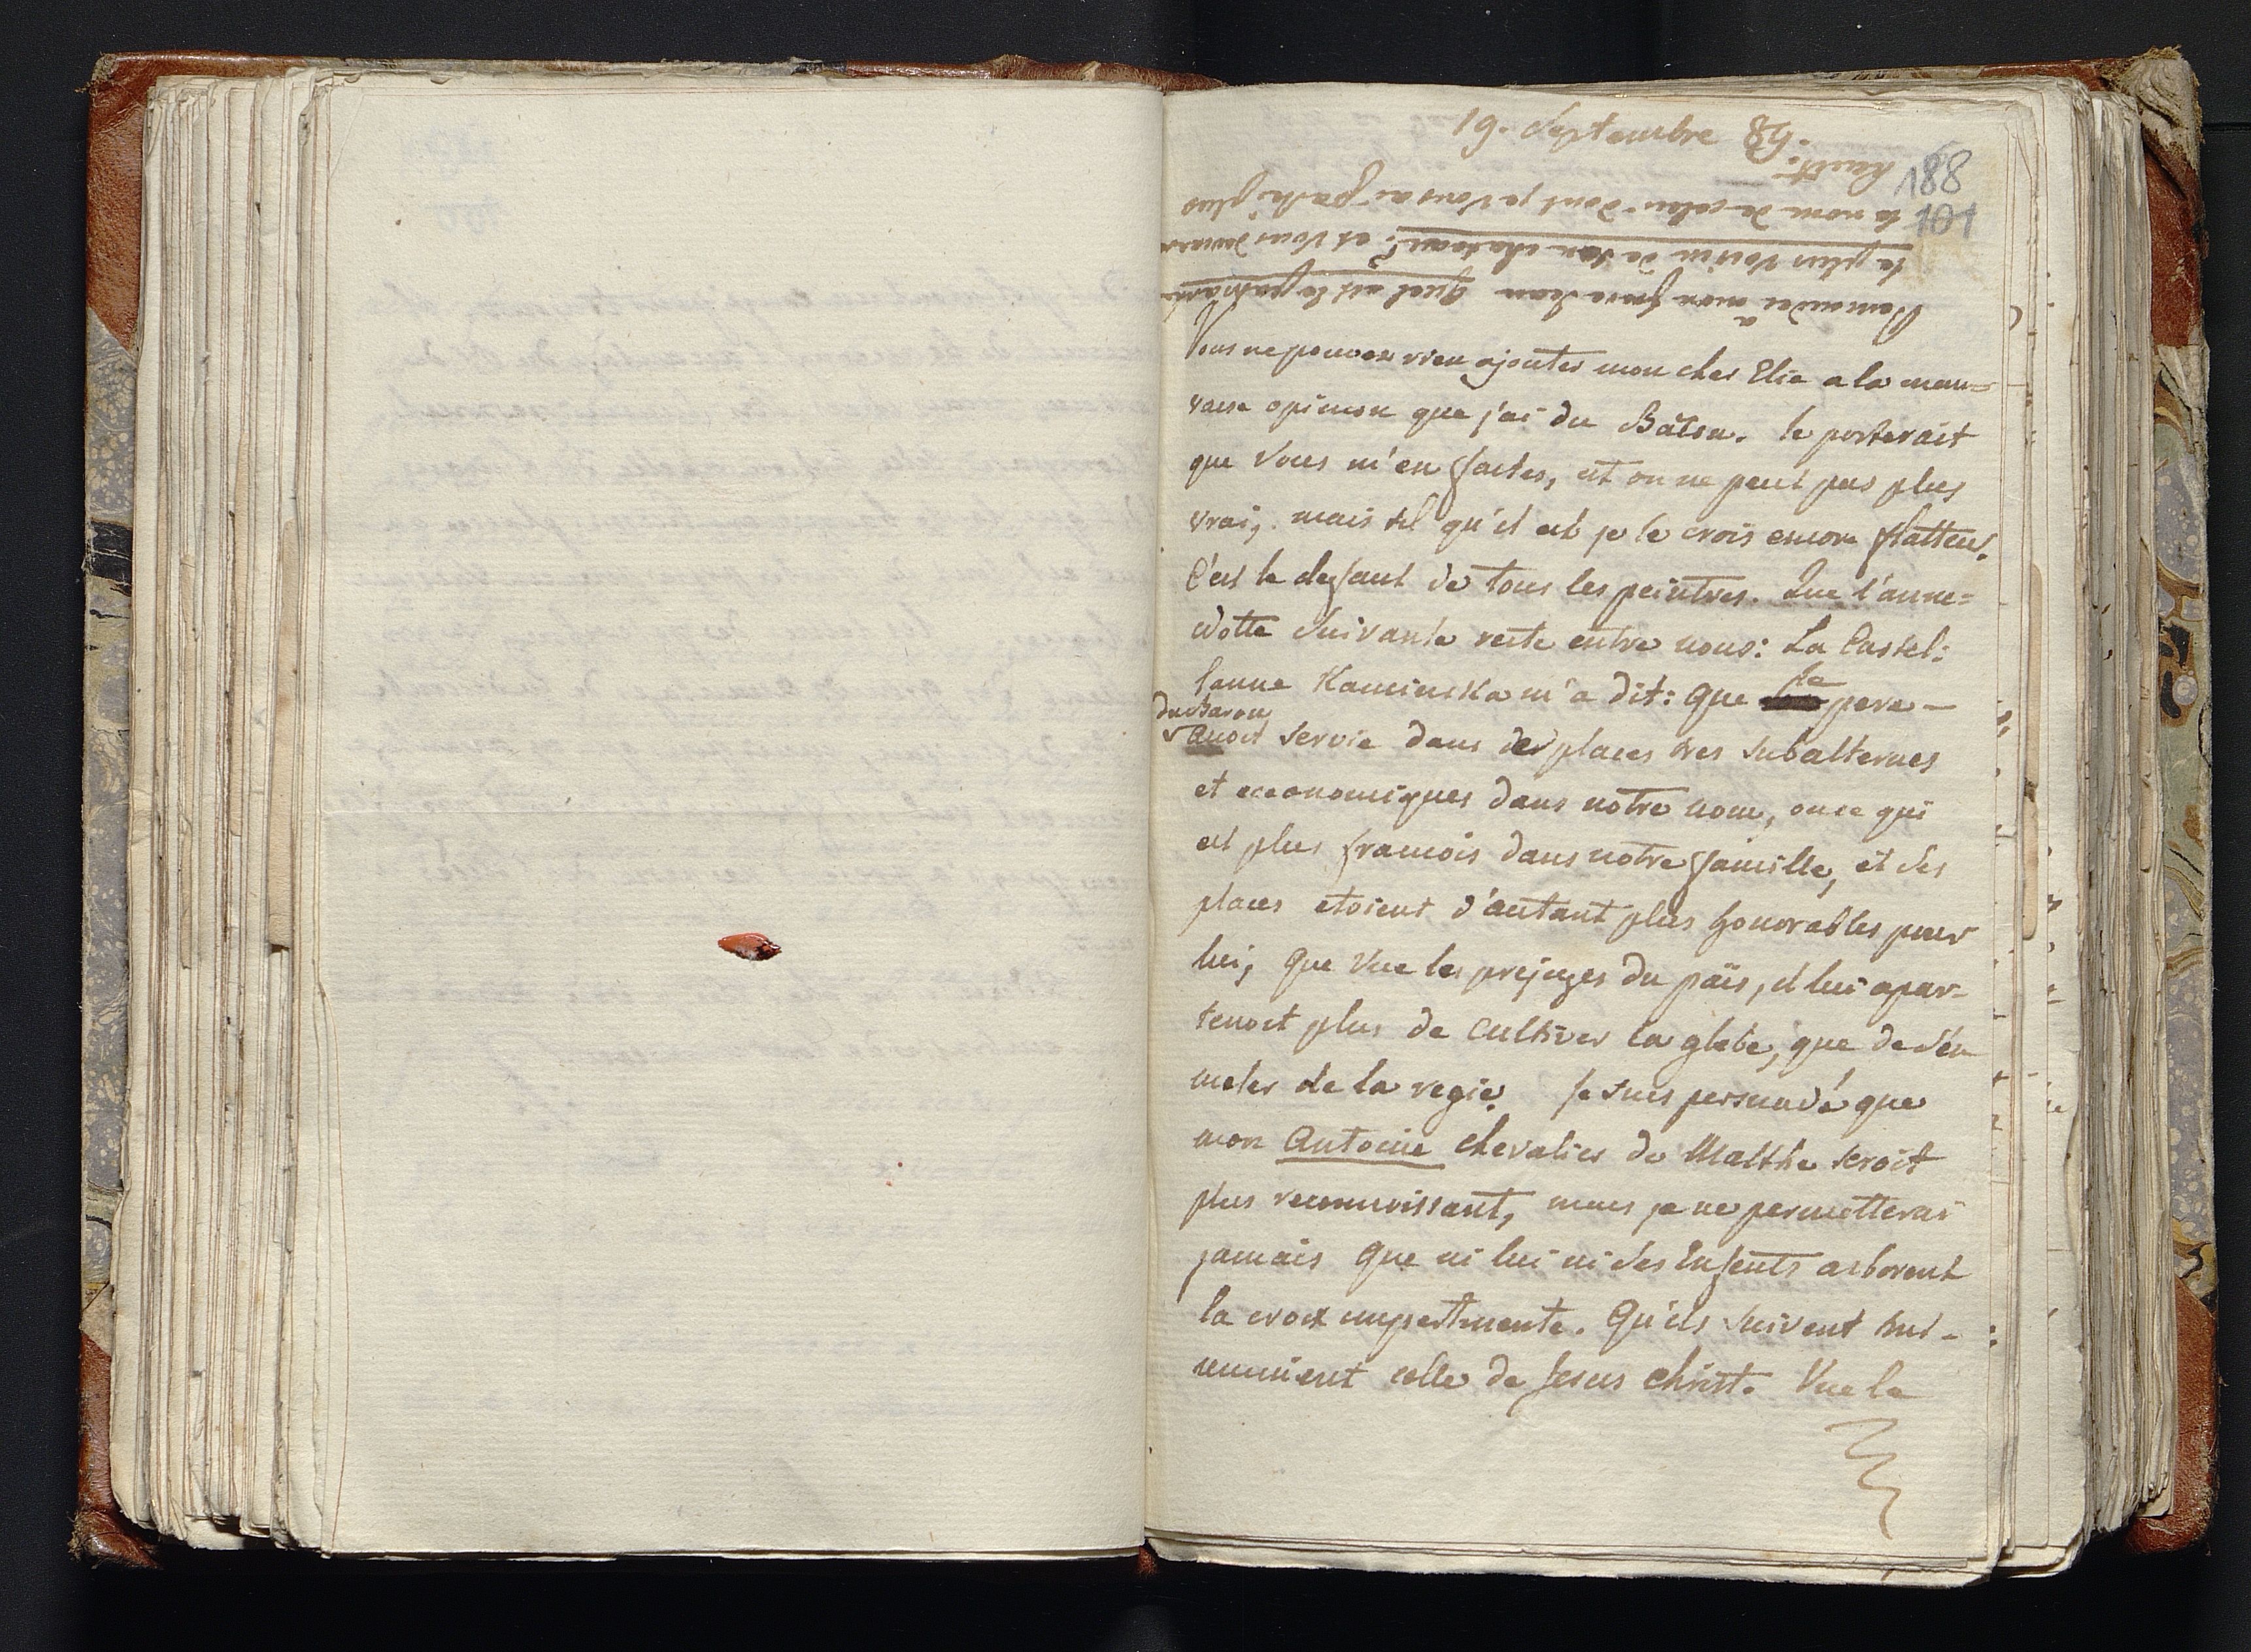 19. Septembre 88.
188
101
Demandez à mon frere Jean quel est le palatinat
le plus voisin de son chateau? et vous devinerez
le nom de celui dont je vous ai parlé plus
haut.
Vous ne pouvez rien ajouter mon cher Elie a la mau=
vaise opinion que j'ai du Bâton. le porterait
que vous m'en faites, est on ne peut pas plus
vrai, mais tel qu'il est je le crois encore flatteur.
C'est le deffaut de tous les peintres. Que l'anne=
dotte suivante reste entre nous: La Castel:
lanne Kaminska m'a dit: que le pere —
du Baron
avoit servie dans des places tres subalternes
et oeconomiques dans notre nom, ou ce qui
est plus francois dans notre famille, et ses
places etoient d'autant plus honorables pour
lui, que vue les prejuges du païs, il lui apar-
tenoit plus de cultiver la glebe, que de s'en
meler de la regie. Je suis persuadé que
mon Antoine chevalier de Malthe seroit
plus reconnoissant, mais je ne permetterai
jamais que ni lui ni ses enfents arborent
la croix impertinente. Qu'ils suivent hu-
mement celle de Jesus Christ. Vue la